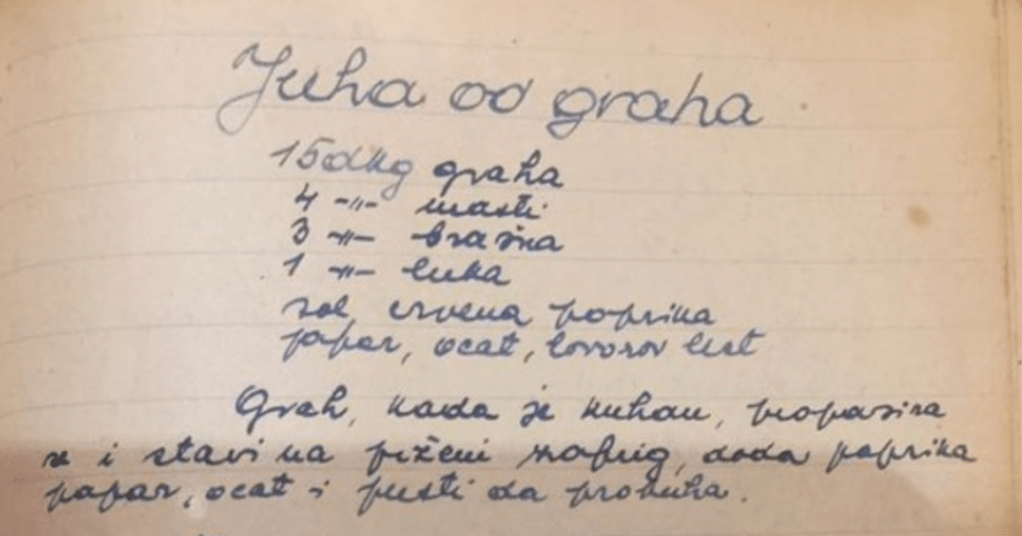 Juha od graha
15 dkg graha
4 -"- masti
3 -"- brašna
1 -"- luka
sol, crvena paprika
papar, ocat, lovorov list
Grah, kada je kuhan, propasira
se i stavi na prženi zafrig, doda paprika
papar, ocat i pusti da prokuha.